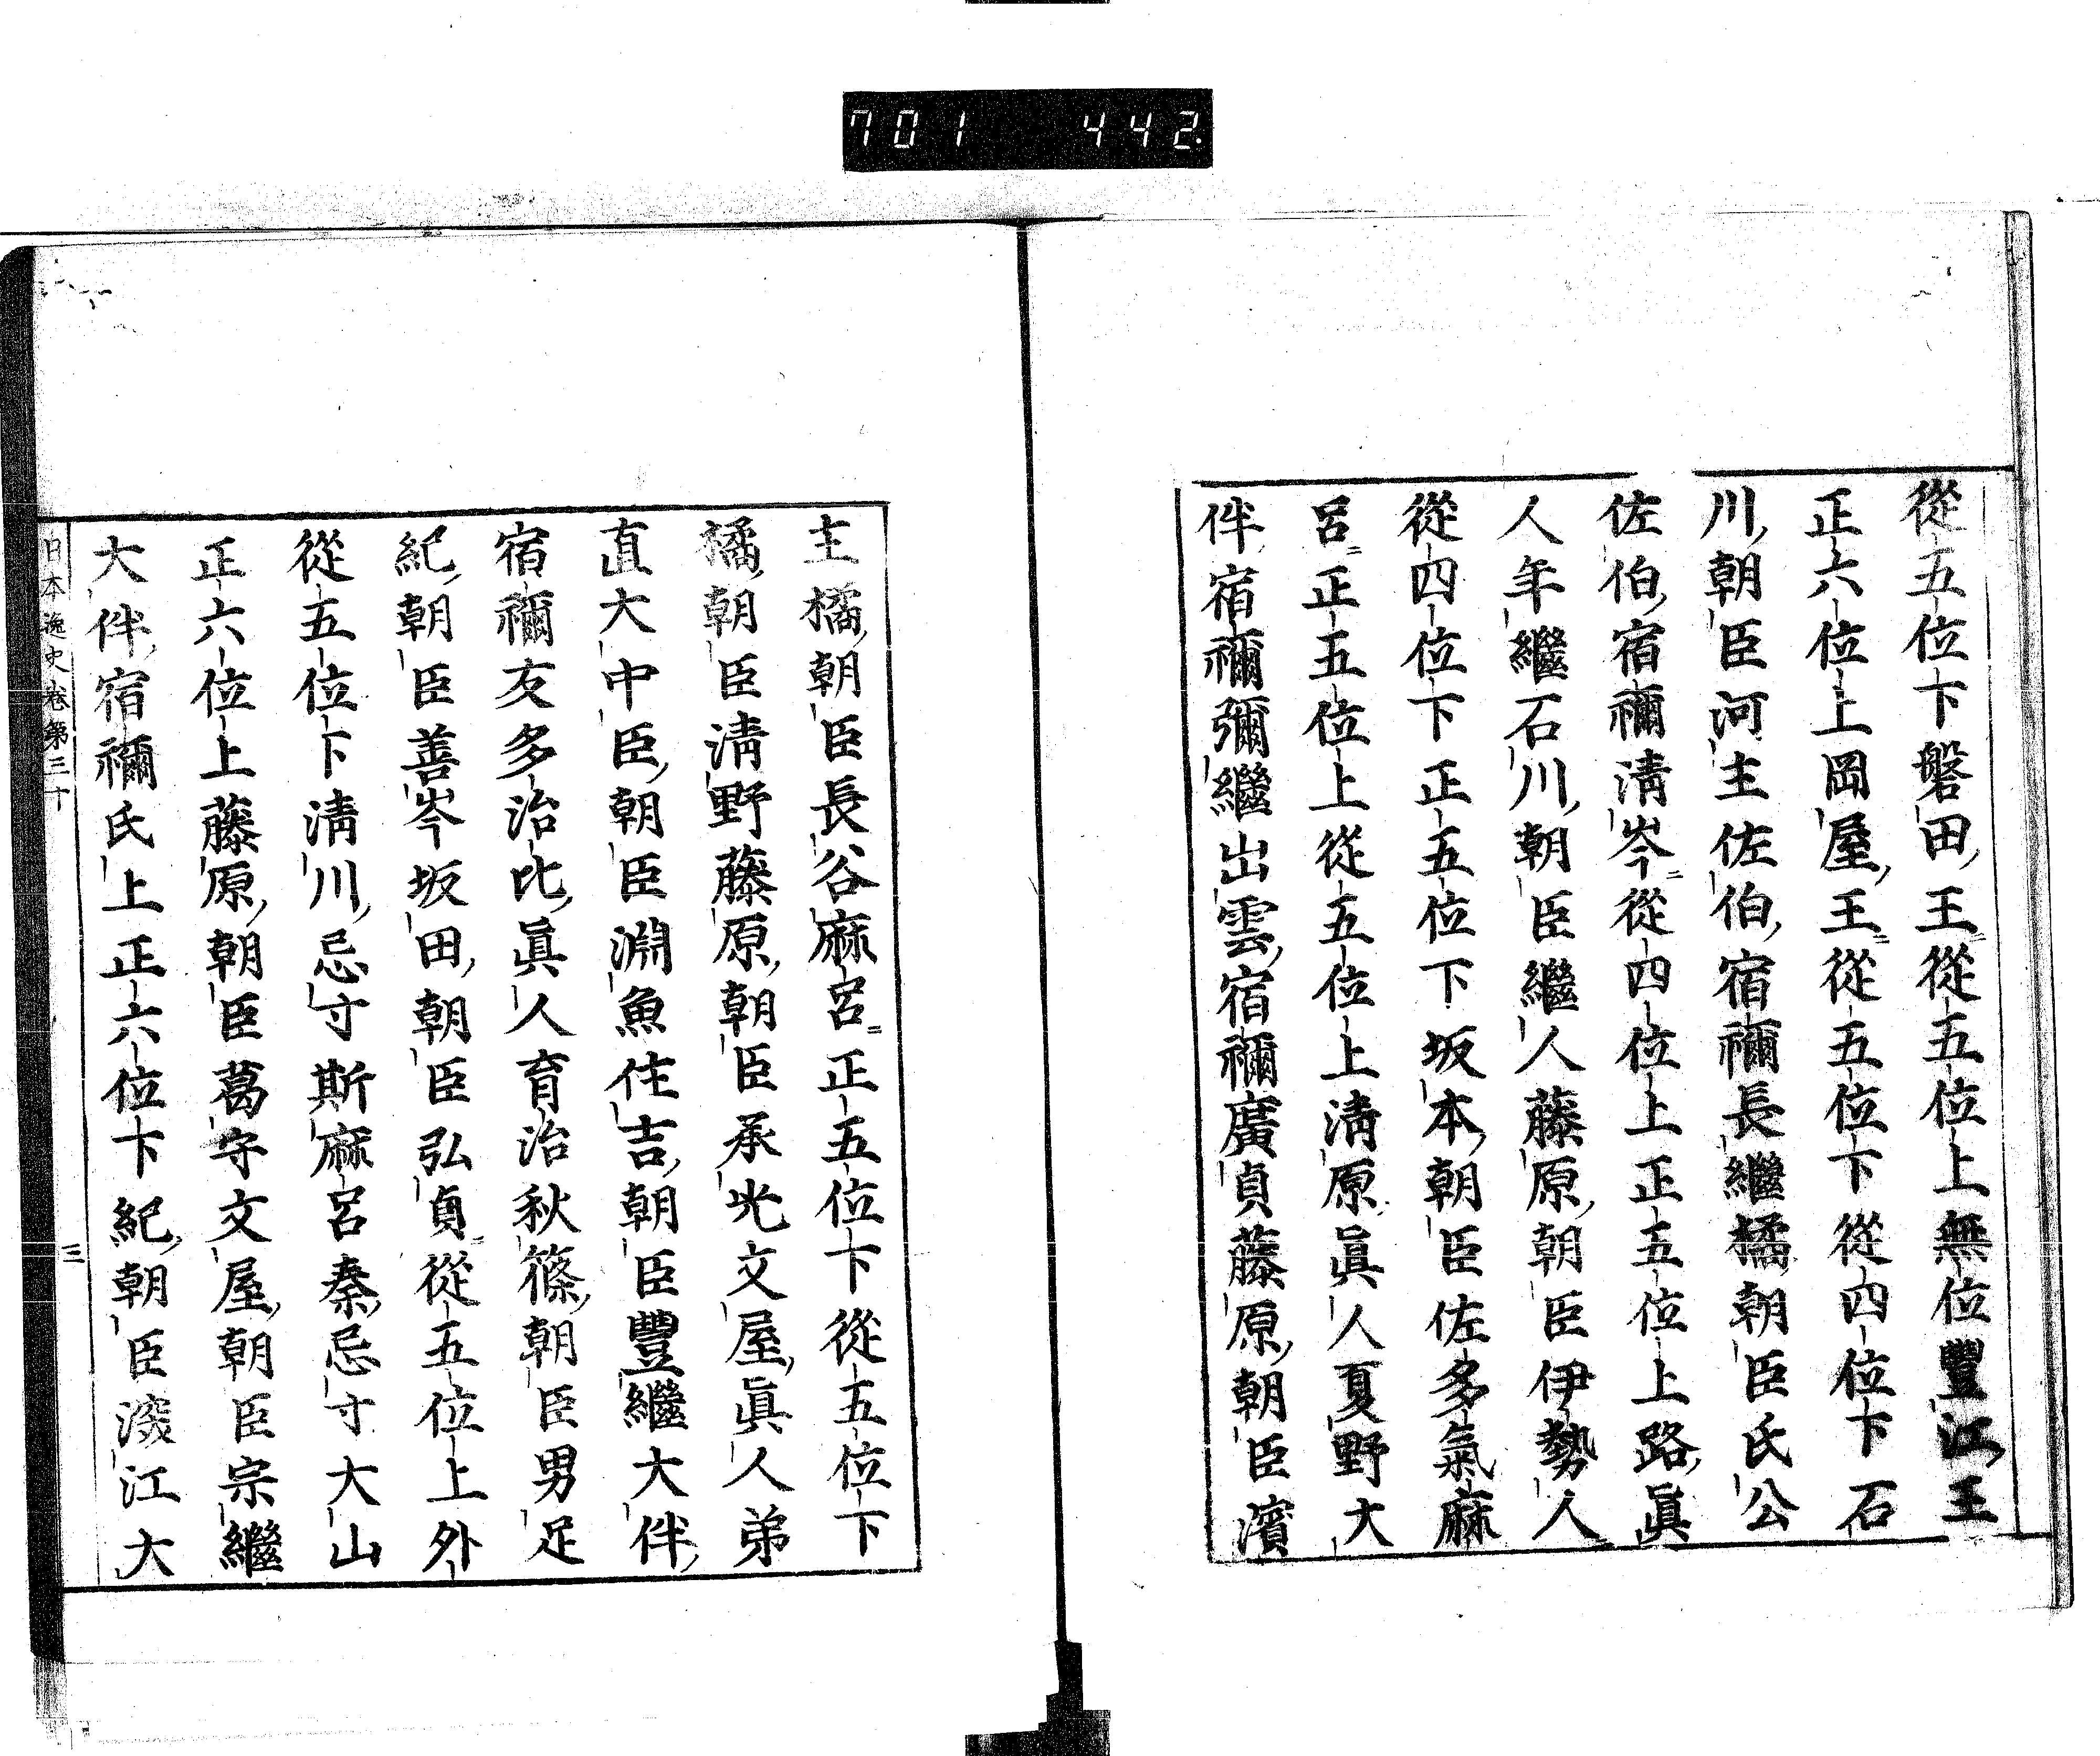 701 442.
從五位下磐田王從五位上無位豐江王
正六位上岡屋王從五位下從四位下石
川朝臣河主佐伯宿禰長繼橘朝臣氏公
佐伯宿禰淸岑從四位上正五位上路眞
人年繼石川朝臣繼人藤原朝臣伊勢人
從四位下正五位下坂本朝臣佐多氣麻
呂正五位上從五位上淸原眞人夏野大
伴宿禰彌繼出雲宿禰廣貞藤原朝臣濱
主橘朝臣長谷麻呂正五位下從五位下
橘朝臣淸野藤原朝臣承之文屋眞人弟
直大中臣朝臣淵魚住吉朝臣豐繼大伴
宿禰友多治比眞人育治秋篠朝臣男足
紀朝臣善岑坂田朝臣弘貞從五位上外
從五位下淸川忌寸斯麻呂秦忌寸大山
正六位上藤原朝臣葛守文屋朝臣宗繼
大伴宿禰氏上正六位下紀朝臣深江大
日本逸史卷第三十 三